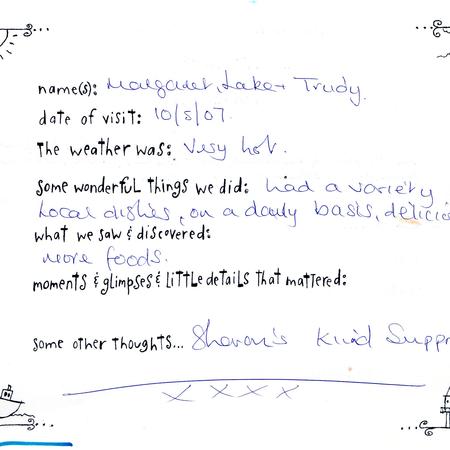 name(s): Margaret, Luke + Trudy.
date of visit: 10/5/07.
The weather was: Very hot.
some wonderful things we did: had a variety
Local dishes, on a daily basis, delicio
what we saw & discovered:
more foods.
moments & glimpses & little details that mattered:
some other thoughts... Sharon's Kind Suppr
x x x x